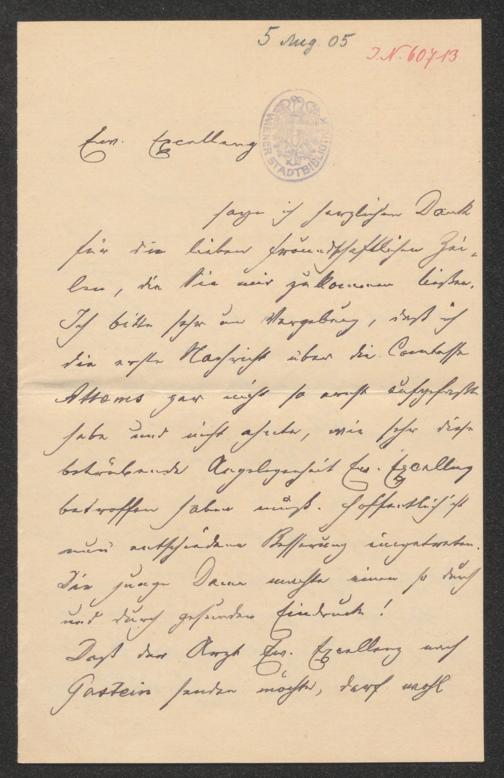 5 Aug. 05
I.N. 60713
WIENER STADTBIBLIOTHEK
Ew. Excellenz
sage ich herzlichen Dank
für die lieben freundschaftlichen Zei-
len, die Sie mir zukommen ließen.
Ich bitte sehr um Vergebung, daß ich
die erste Nachricht über die Comtesse
Attems gar nicht so ernst aufgefaßt
habe und nicht ahnte, wie sehr diese
betrübende Angelegenheit Ew. Excellenz
betroffen haben muß. Hoffentlich ist
nun entschiedene Besserung eingetreten.
Die junge Dame machte einen so durch
und durch gesunden Eindruck!
Daß der Arzt Ew. Excellenz nach
Gastein senden möchte, darf wohl